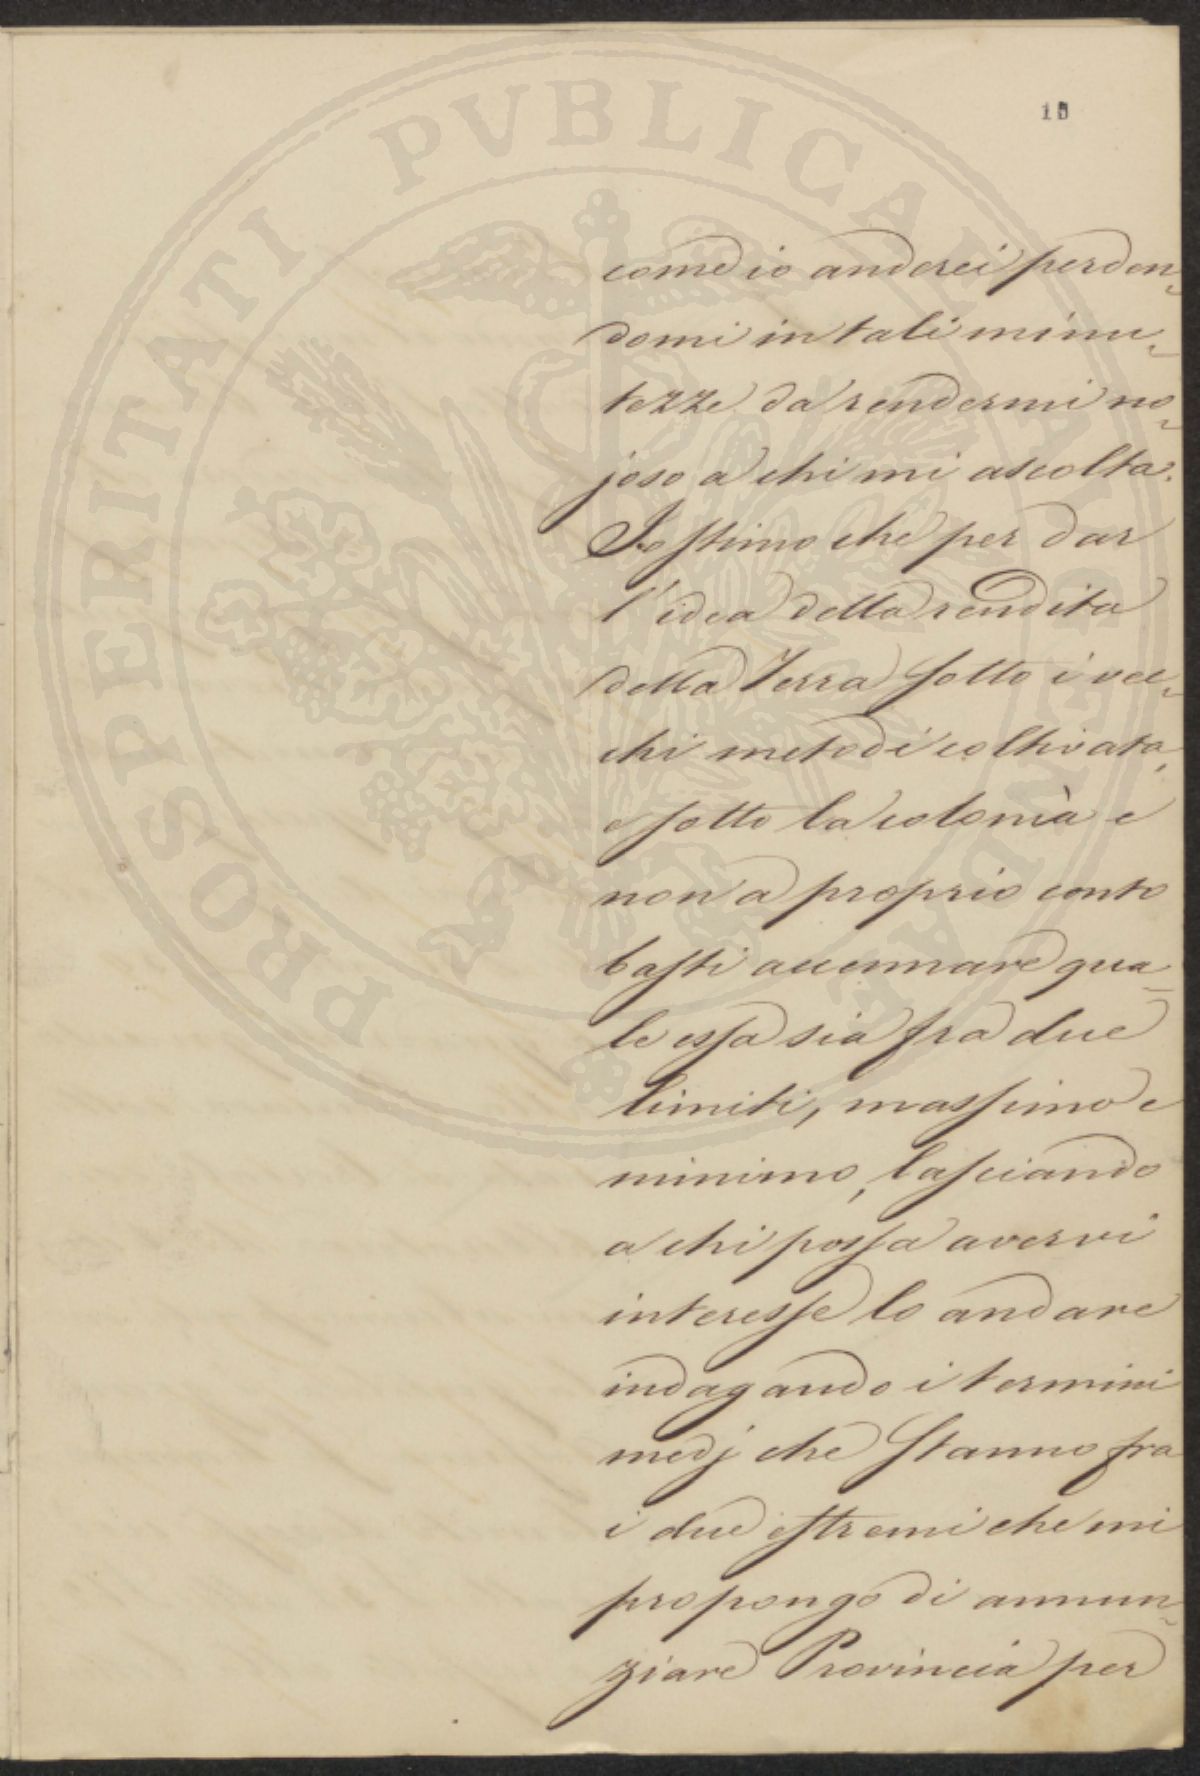 PROSPERITATI PVBLICAE AVGENDAE
15
come io anderei perden-
domi in tali minu-
tezze da rendermi no-
joso a chi mi ascolta.
Io stimo che per dar
l'idea della rendita
della Terra sotto i vec-
chi metodi coltivata,
e sotto la colonìa e
non a proprio conto
basti accennare qua-
le essa sia fra due
limiti, massimo e
minimo, lasciando
a chi possa avervi
interesse lo andare
indagando i termini
medj che stanno fra
i due estremi che mi
propongo di annun-
ziare Provincia per